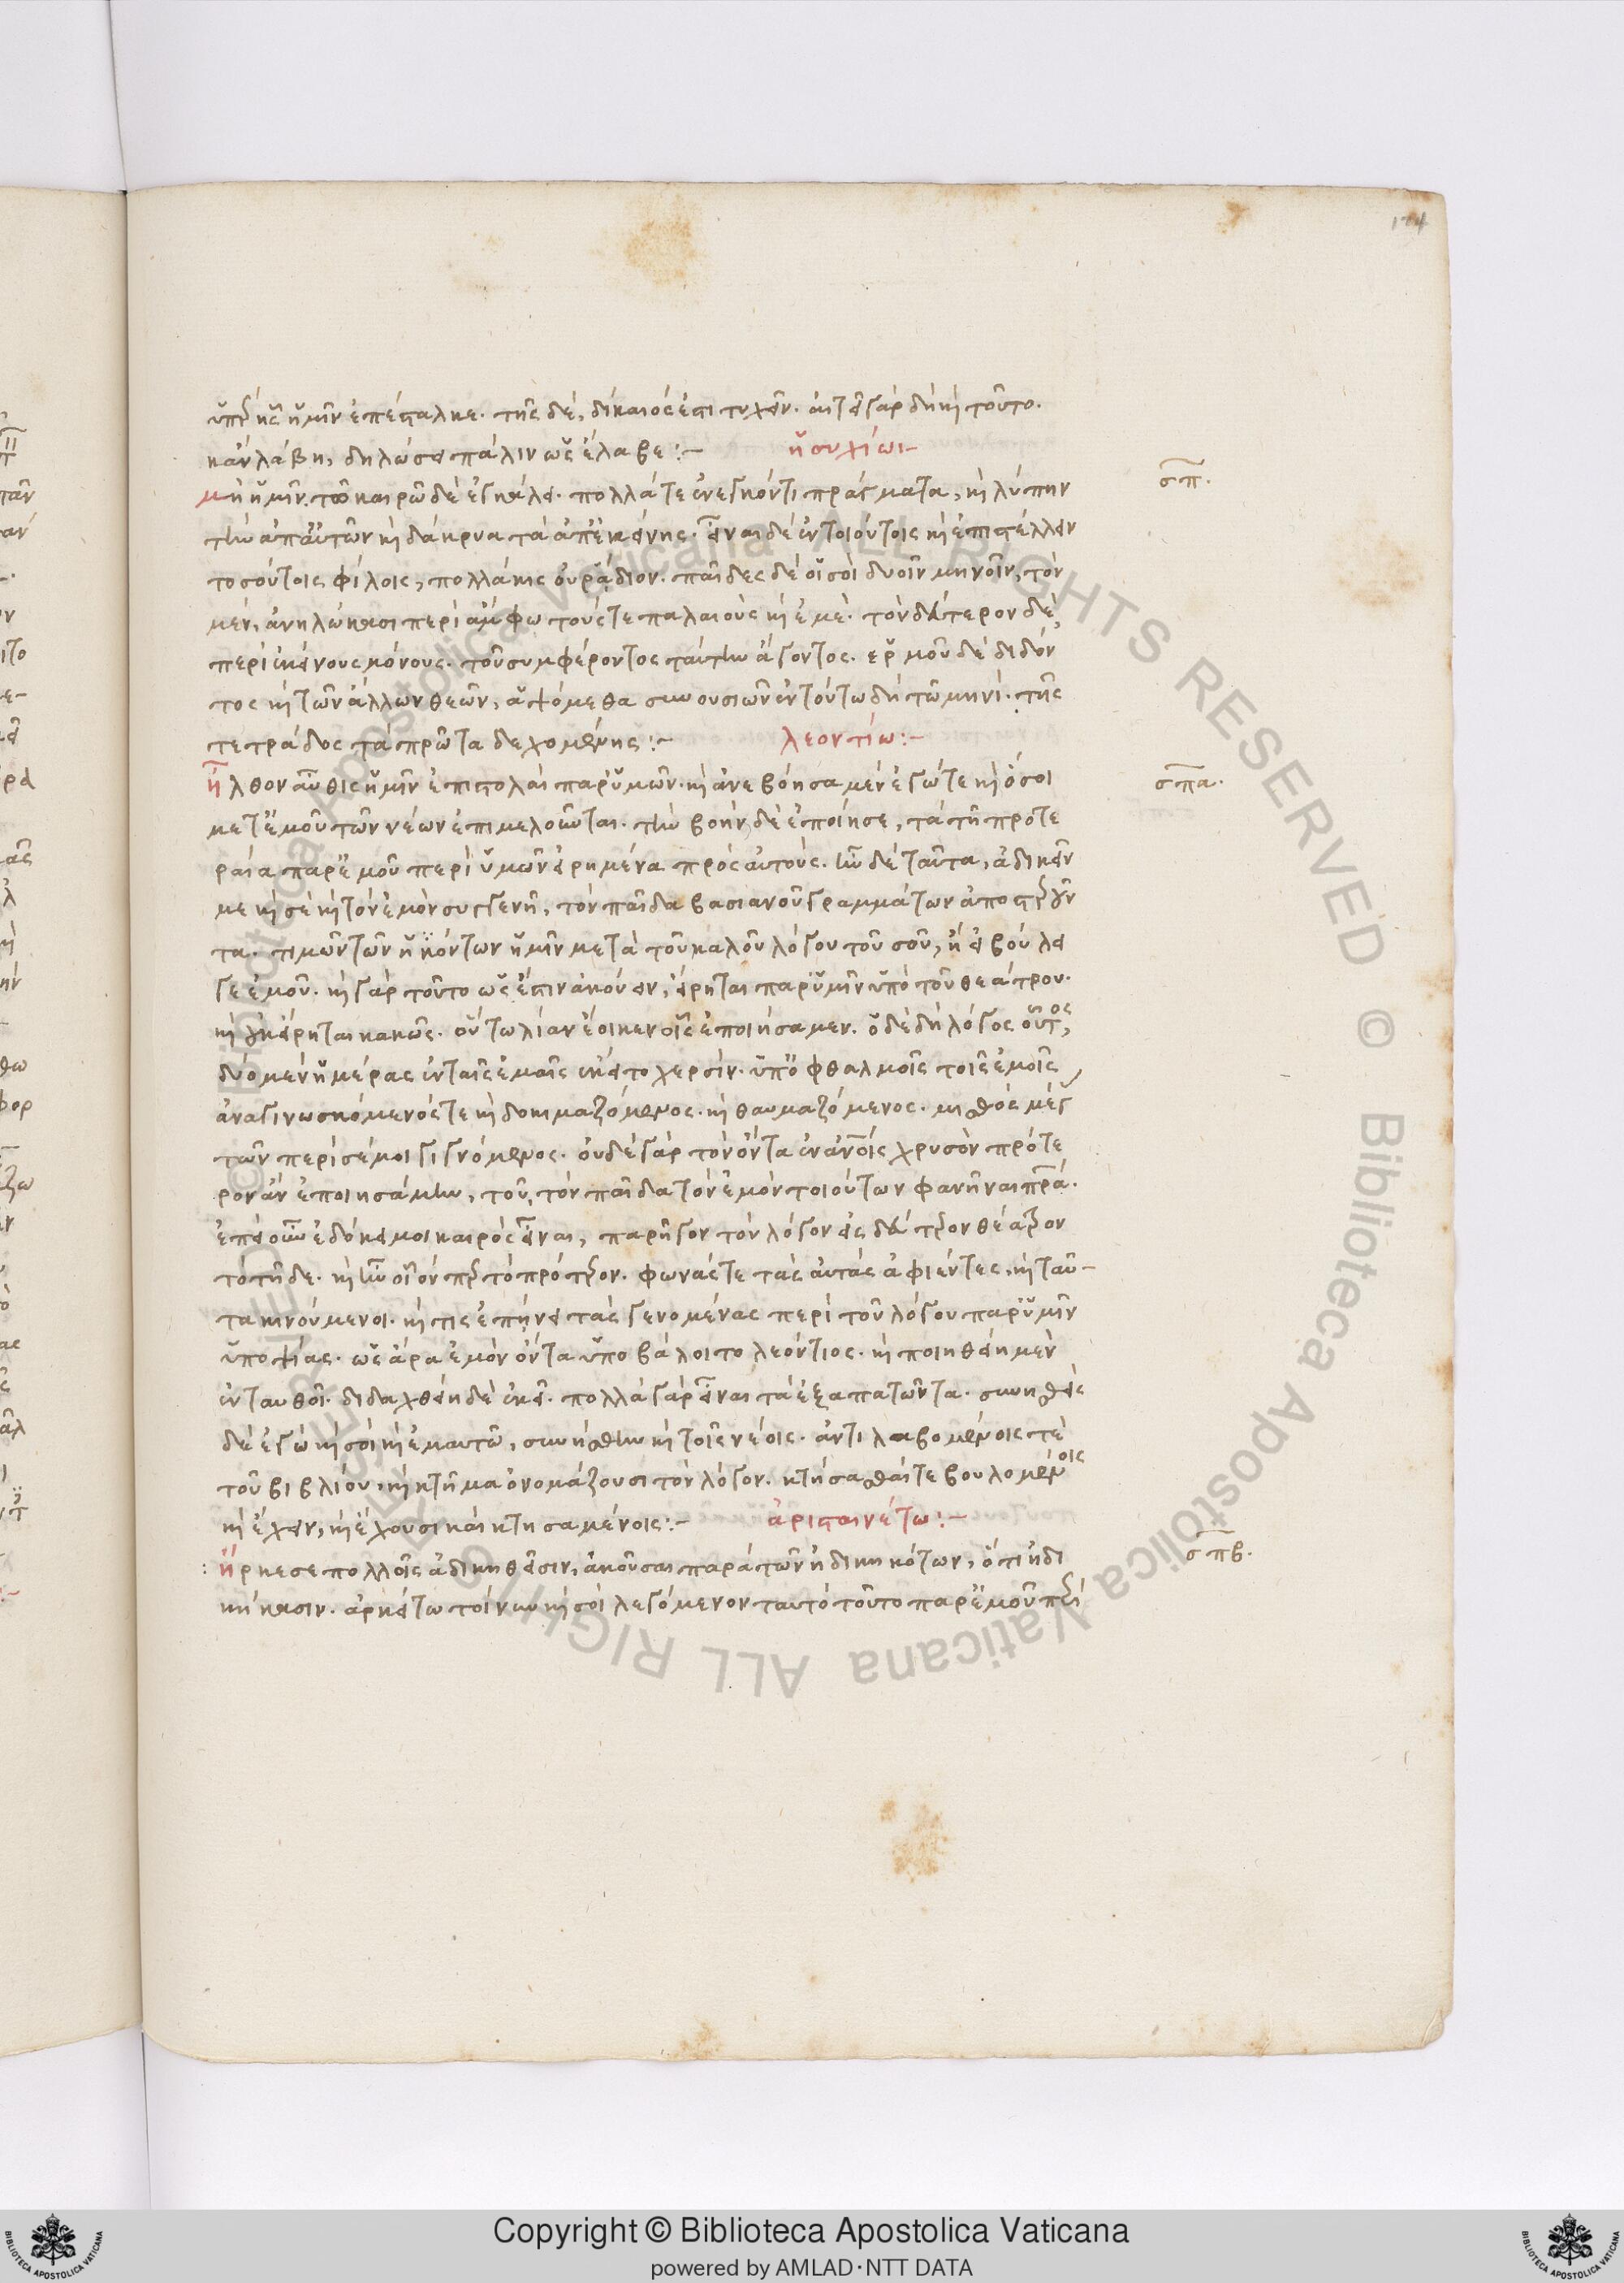 174
ὑπὲρ ἧς ἡμῖν ἐπέσταλκε. τῆς δὲ, δίκαιός ἐστι τυχεῖν. αἰτεῖ γὰρ δὴ καὶ τοῦτο.
κἂν λάβῃ, δηλώσει πάλιν ὡς ἔλαβε :- ἡσυχίωι -
μὴ ἡμῖν. τῶ καιρῶ δὲ ἐγκάλει. πολλά τε ἐνεγκόντι πράγματα, καὶ λύπην σπ.
τὴν ἀπ' αὐτῶν καὶ δάκρυα τὰ ἀπ' ἐκείνης. εἶναι δὲ ἐν τοιούτοις καὶ ἐπιστέλλειν
τοσούτοις φίλοις, πολλάκις οὐ ῥᾴδιον. παῖδες δὲ οἱ σοὶ δυοῖν μηνοῖν, τὸν
μὲν, ἀνηλώκασι περὶ ἄμφω τούς τε παλαιοὺς καὶ ἐμὲ. τὸν δεύτερον δὲ,
περὶ ἐκείνους μόνους. τοῦ συμφέροντος ταύτην ἄγοντος. ἑρμοῦ δὲ διδόν
τος καὶ τῶν ἄλλων θεῶν, ἁψόμεθα συνουσιῶν ἐν τούτω δὴ τῶ μηνὶ. τῆς
τετράδος τὰ πρῶτα δεχομένης :- λεοντίω :-
ἦλθον αὖθις ἡμῖν ἐπιστολαὶ παρ' ὑμῶν. καὶ ἀνεβόησα μὲν ἐγώ τε καὶ ὅσοι σπα.
μετ' ἐμοῦ τῶν νέων ἐπιμελοῦνται. τὴν βοὴν δὲ ἐποίησε, τὰ τῆ προτε
ραία παρ' ἐμοῦ περὶ ὑμῶν εἰρημένα πρὸς αὐτούς. ἦν δὲ ταῦτα, ἀδικεῖν
με καὶ σὲ καὶ τὸν ἐμὸν συγγενῆ, τὸν παῖδα βασιανοῦ γραμμάτων ἀποστεροῦν
τα. τιμώντων ἡκόντων ἡμῖν μετὰ τοῦ καλοῦ λόγου τοῦ σοῦ, ἢ εἰ βούλει
γε ἐμοῦ. καὶ γὰρ τοῦτο ὡς ἔστιν ἀκούειν, εἴρηται παρ' ὑμῖν ὑπὸ τοῦ θεάτρου.
καὶ οὐκ εἴρηται κακῶς. οὕτω λίαν ἔοικεν οἷς ἐποιήσαμεν. ὁ δὲ δὴ λόγος οὗτος,
δύο μὲν ἡμέρας ἐν ταῖς ἐμαῖς ἔκειτο χερσὶν. ὑπ' ὀφθαλμοῖς τοῖς ἐμοῖς
ἀναγινωσκόμενός τε καὶ δοκιμαζόμενος. καὶ θαυμαζόμενος. μισθός μέγ
των περί σέ μοι γιγνόμενος. οὐδὲ γὰρ τὸν ὄντα ἐν χρυσὸν πρότε
ρον ἂν ἐποιησάμην, τοῦ, τὸν παῖδα τὸν ἐμὸν τοιούτων φανῆναι πατέρα.
ἐπεὶ οὖν ἐδόκει μοι καιρὸς εἶναι, παρῆγον τὸν λόγον εἰς δεύτερον θέατρον
τὸ τῆδε. καὶ ἦν οἷον περ τὸ πρότερον. φωνάς τε τὰς αὐτὰς ἀφιέντες, καὶ ταῦ-
τα κινούμενοι. καί τις ἐπῄνει τὰς γενομένας περὶ τοῦ λόγου παρ' ὑμῖν
ὑποψίας. ὡς ἄρα ἐμὸν ὄντα ὑποβάλοιτο λεόντιος. καὶ ποιηθείη μὲν
ἐνταυθοῖ. διδαχθείη δὲ ἐκεῖ. πολλὰ γὰρ εἶναι τὰ ἐξαπατῶντα. συνησθεὶς
δὲ ἐγὼ καὶ σοὶ καὶ ἐμαυτῶ, συνήσθην καὶ τοῖς νέοις. ἀντιλαβομένοις τὲ
τοῦ βιβλίου, καὶ κτῆμα ὀνομάζουσι τὸν λόγον. κτήσασθαί τε βουλομένοις
καὶ ἔχειν, καὶ ἔχουσι καὶ κτησαμένοις :- ἀρισταινέτω :-
ἤρκεσε πολλοῖς ἀδικηθεῖσιν, ἀκοῦσαι παρὰ τῶν ἠδικηκότων, ὅτι ἠδι σπβ.
κήκασιν. ἀρκείτω τοίνυν καὶ σοὶ λεγόμενον ταυτὸ τοῦτο παρ' ἐμοῦ περὶ
Copyright © Biblioteca Apostolica Vaticana
powered by AMLAD·NTT DATA